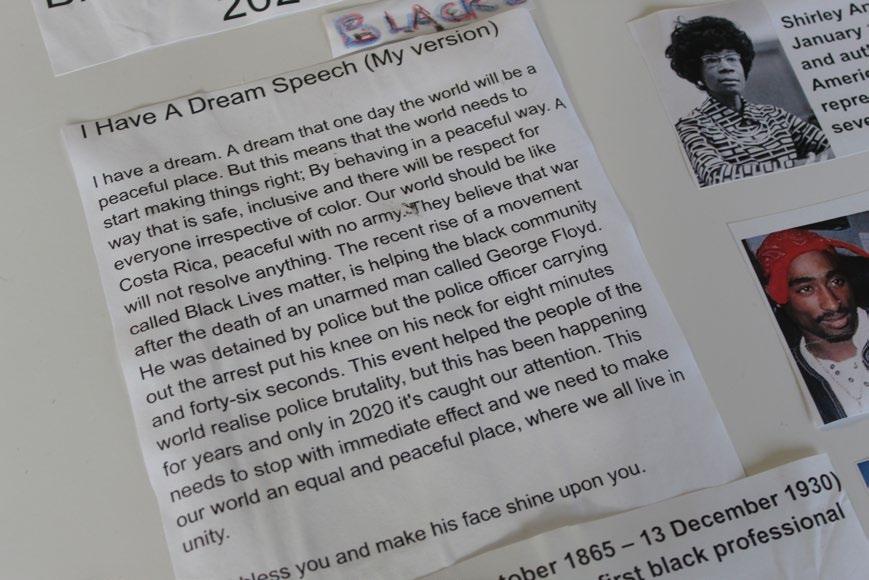 202
BLACK
I Have A Dream Speech (My version)
I have a dream. A dream that one day the world will be a
peaceful place. But this means that the world needs to
start making things right; By behaving in a peaceful way. A
way that is safe, inclusive and there will be respect for
everyone irrespective of color. Our world should be like
Costa Rica, peaceful with no army. They believe that war
will not resolve anything. The recent rise of a movement
called Black Lives matter, is helping the black community
after the death of an unarmed man called George Floyd.
He was detained by police but the police officer carrying
out the arrest put his knee on his neck for eight minutes
and forty-six seconds. This event helped the people of the
world realise police brutality, but this has been happening
for years and only in 2020 it's caught our attention. This
needs to stop with immediate effect and we need to make
our world an equal and peaceful place, where we all live in
unity.
bless you and make his face shine upon you.
Shirley An
January
and aut
Americ
repre
seve
tober 1865 – 13 December 1930)
first black professional